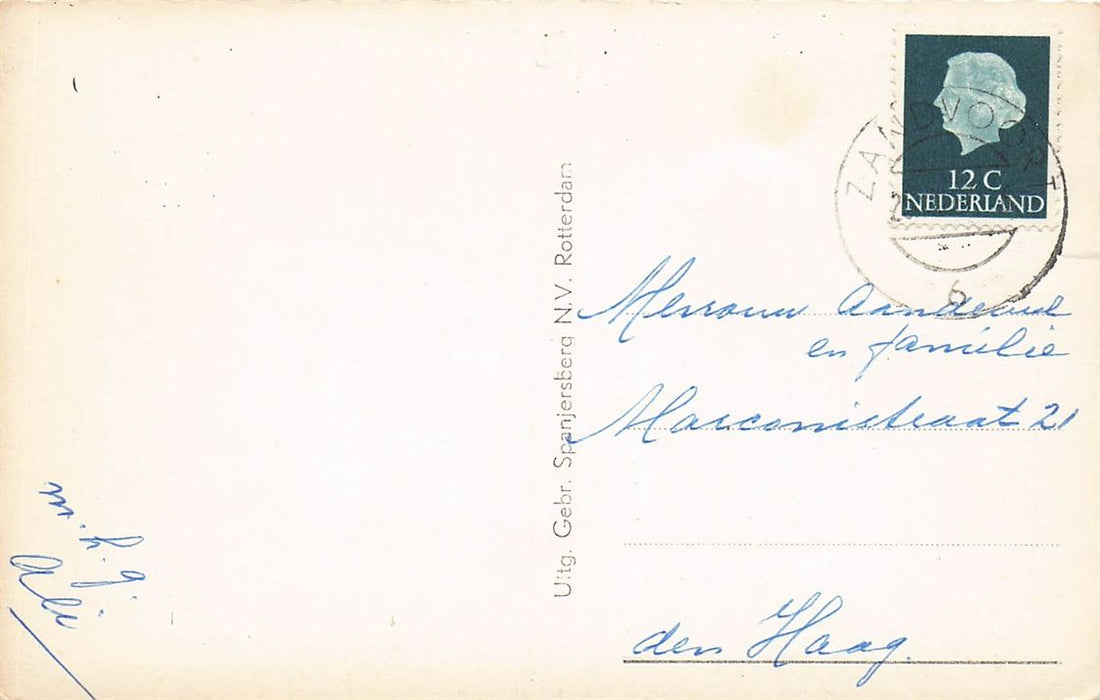 12 C
NEDERLAND
ZANDVOORT
6
Uitg. Gebr. Spanjersberg N.V. Rotterdam
Mevrouw
en familie
Marconistraat 21
den Haag.
m. h. g.
Ali